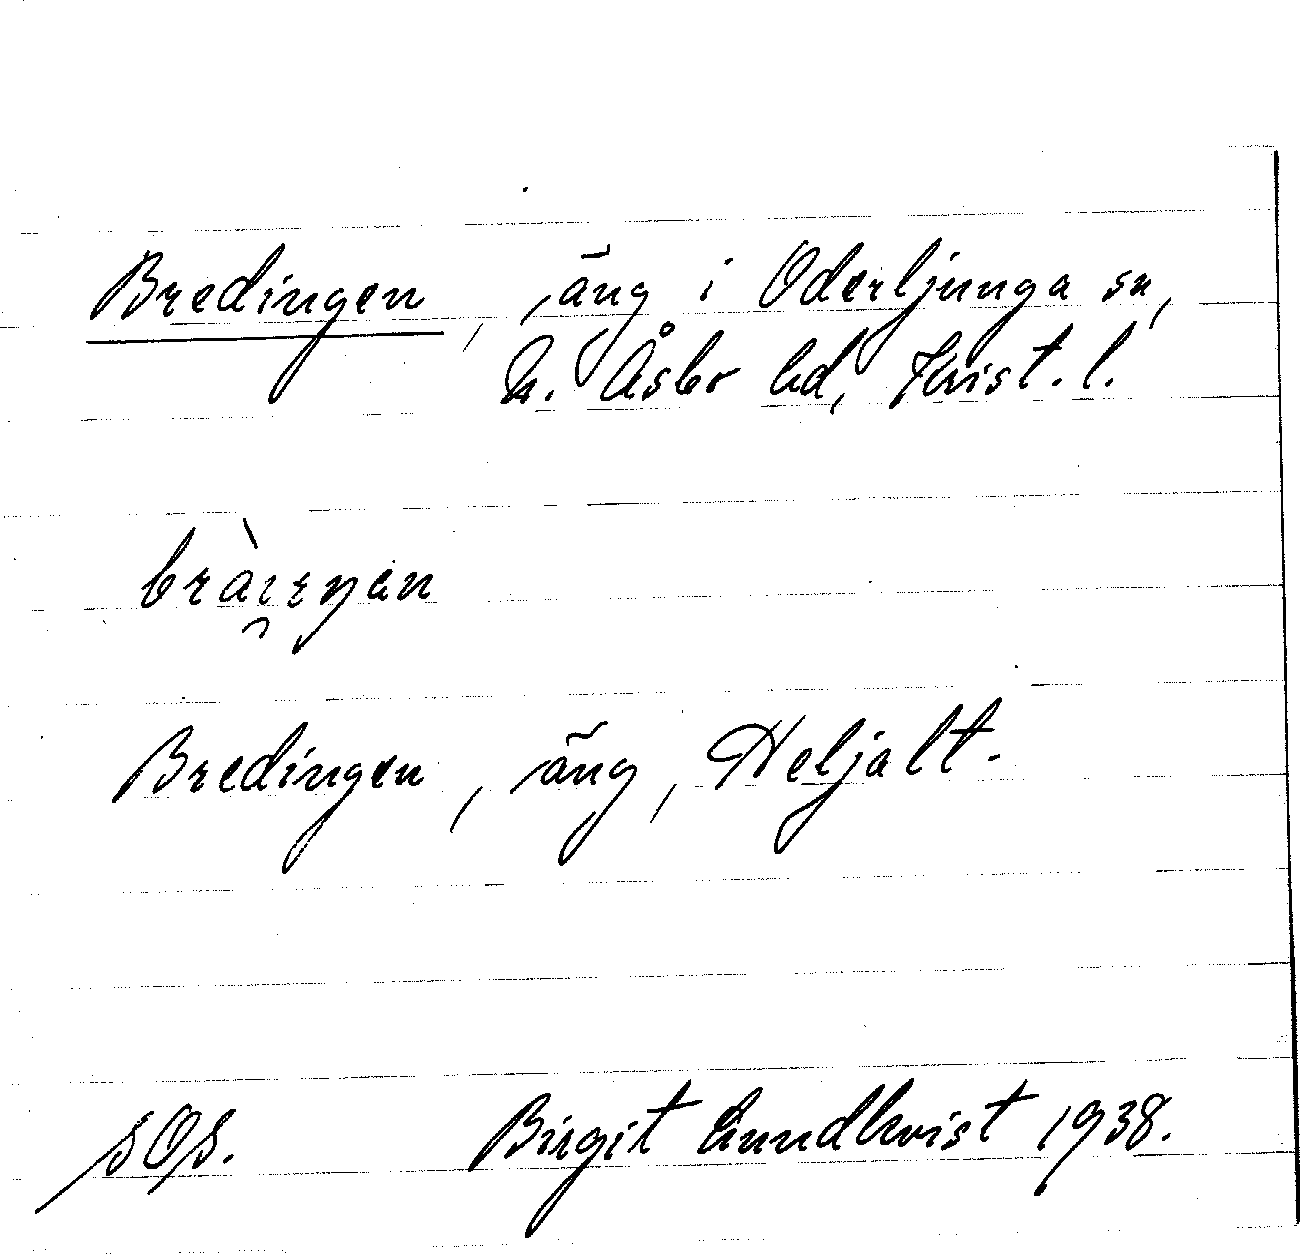 Bredingen, äng i Oderljunga sn,
N. Åsbo hd, Krist. l.
Bredingen, äng, Heljalt.
SOS. Birgit Lundkvist 1938.